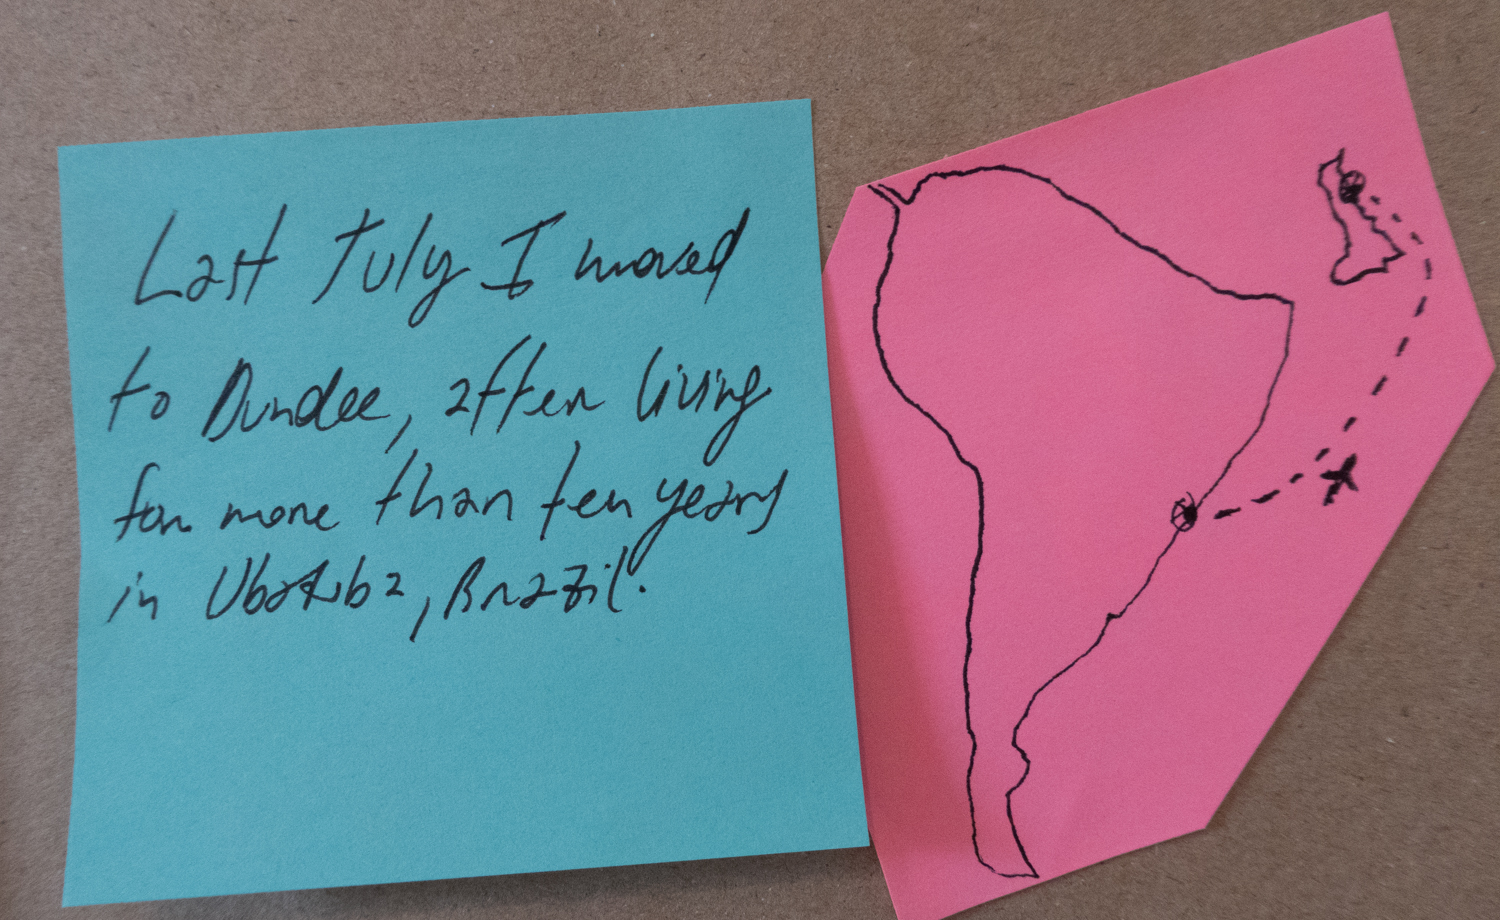 Last July I moved
to Dundee, after living
for more than ten years
in Ubatuba, Brazil.